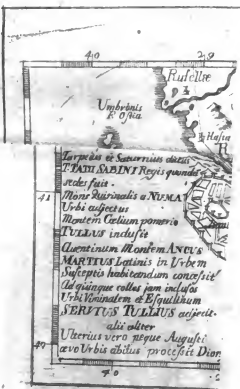 40
29
Rusellæ
Umbrònis
F. Ostia
Hasta
Tarpeius et Saturnius dictus
TTATII SABINI Regis quondā
sedes fuit.
Mons Quirinalis a NUMA
Urbi adjectus
Montem Cœlium pomerio
TULLUS inclusit
41
Aventinum Montem ANCUS
MARTIUS Latinis in Urbem
Susceptis habitandum concessit
Ad quinque colles jam inclusos
Urbi Viminalem et Esquilinum
SERVIUS TULLIUS adjecit.
alii aliter
Ulterius vero neque Augusti
ævo Urbis ābitus processit Dion.
40
40